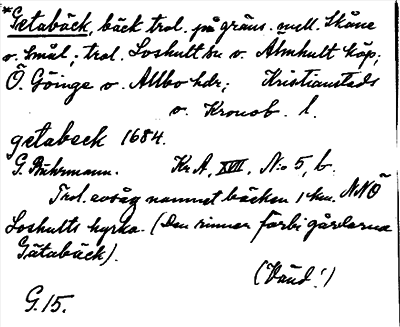 *Getabäck, bäck trol. på gräns. mell. Skåne
o. Smål; trol. Loshult sn o. Älmhult köp;
Ö. Göinge o. Allbo hdr; Kristianstads
o. Kronob. l.
getabeck 1684.
G. Buhrmann. Kr A, XVII, N:o 5, b.
Trol. avsåg namnet bäcken 1 km. NNÖ
Loshults kyrka. (Den rinner förbi gårdarna
Gätabäck).
(Vänd!)
G. 15.